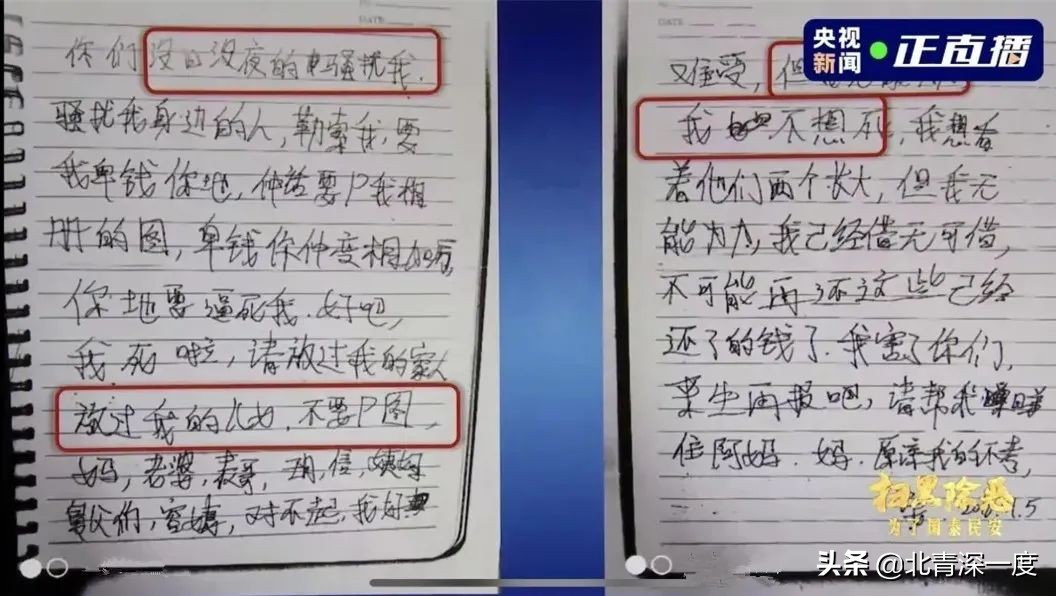 DATE
你们没日没夜的骚扰我.
骚扰我身边的人,勒索我,要
我卑钱你地,仲话要P我相
册的图,卑钱你仲变相加房,
你地要逼死我.好吧,
我死啦,请放过我的家人
放过我的儿女,不要P图,
妈,老婆,表哥,玥,信,姨妈
舅父们,容婶,对不起,我好
DATE
难受,但
我 不想死,我想看
着他们两个长大,但我无
能为力,我已经借无可借,
不可能再还这些已经
还了的钱了.我害了你们,
来生再报吧,请帮我
住阿妈.妈.原谅我的不孝,
1.5
央视
新闻
正直播
扫黑除恶
为了国泰民安
头条 @北青深一度